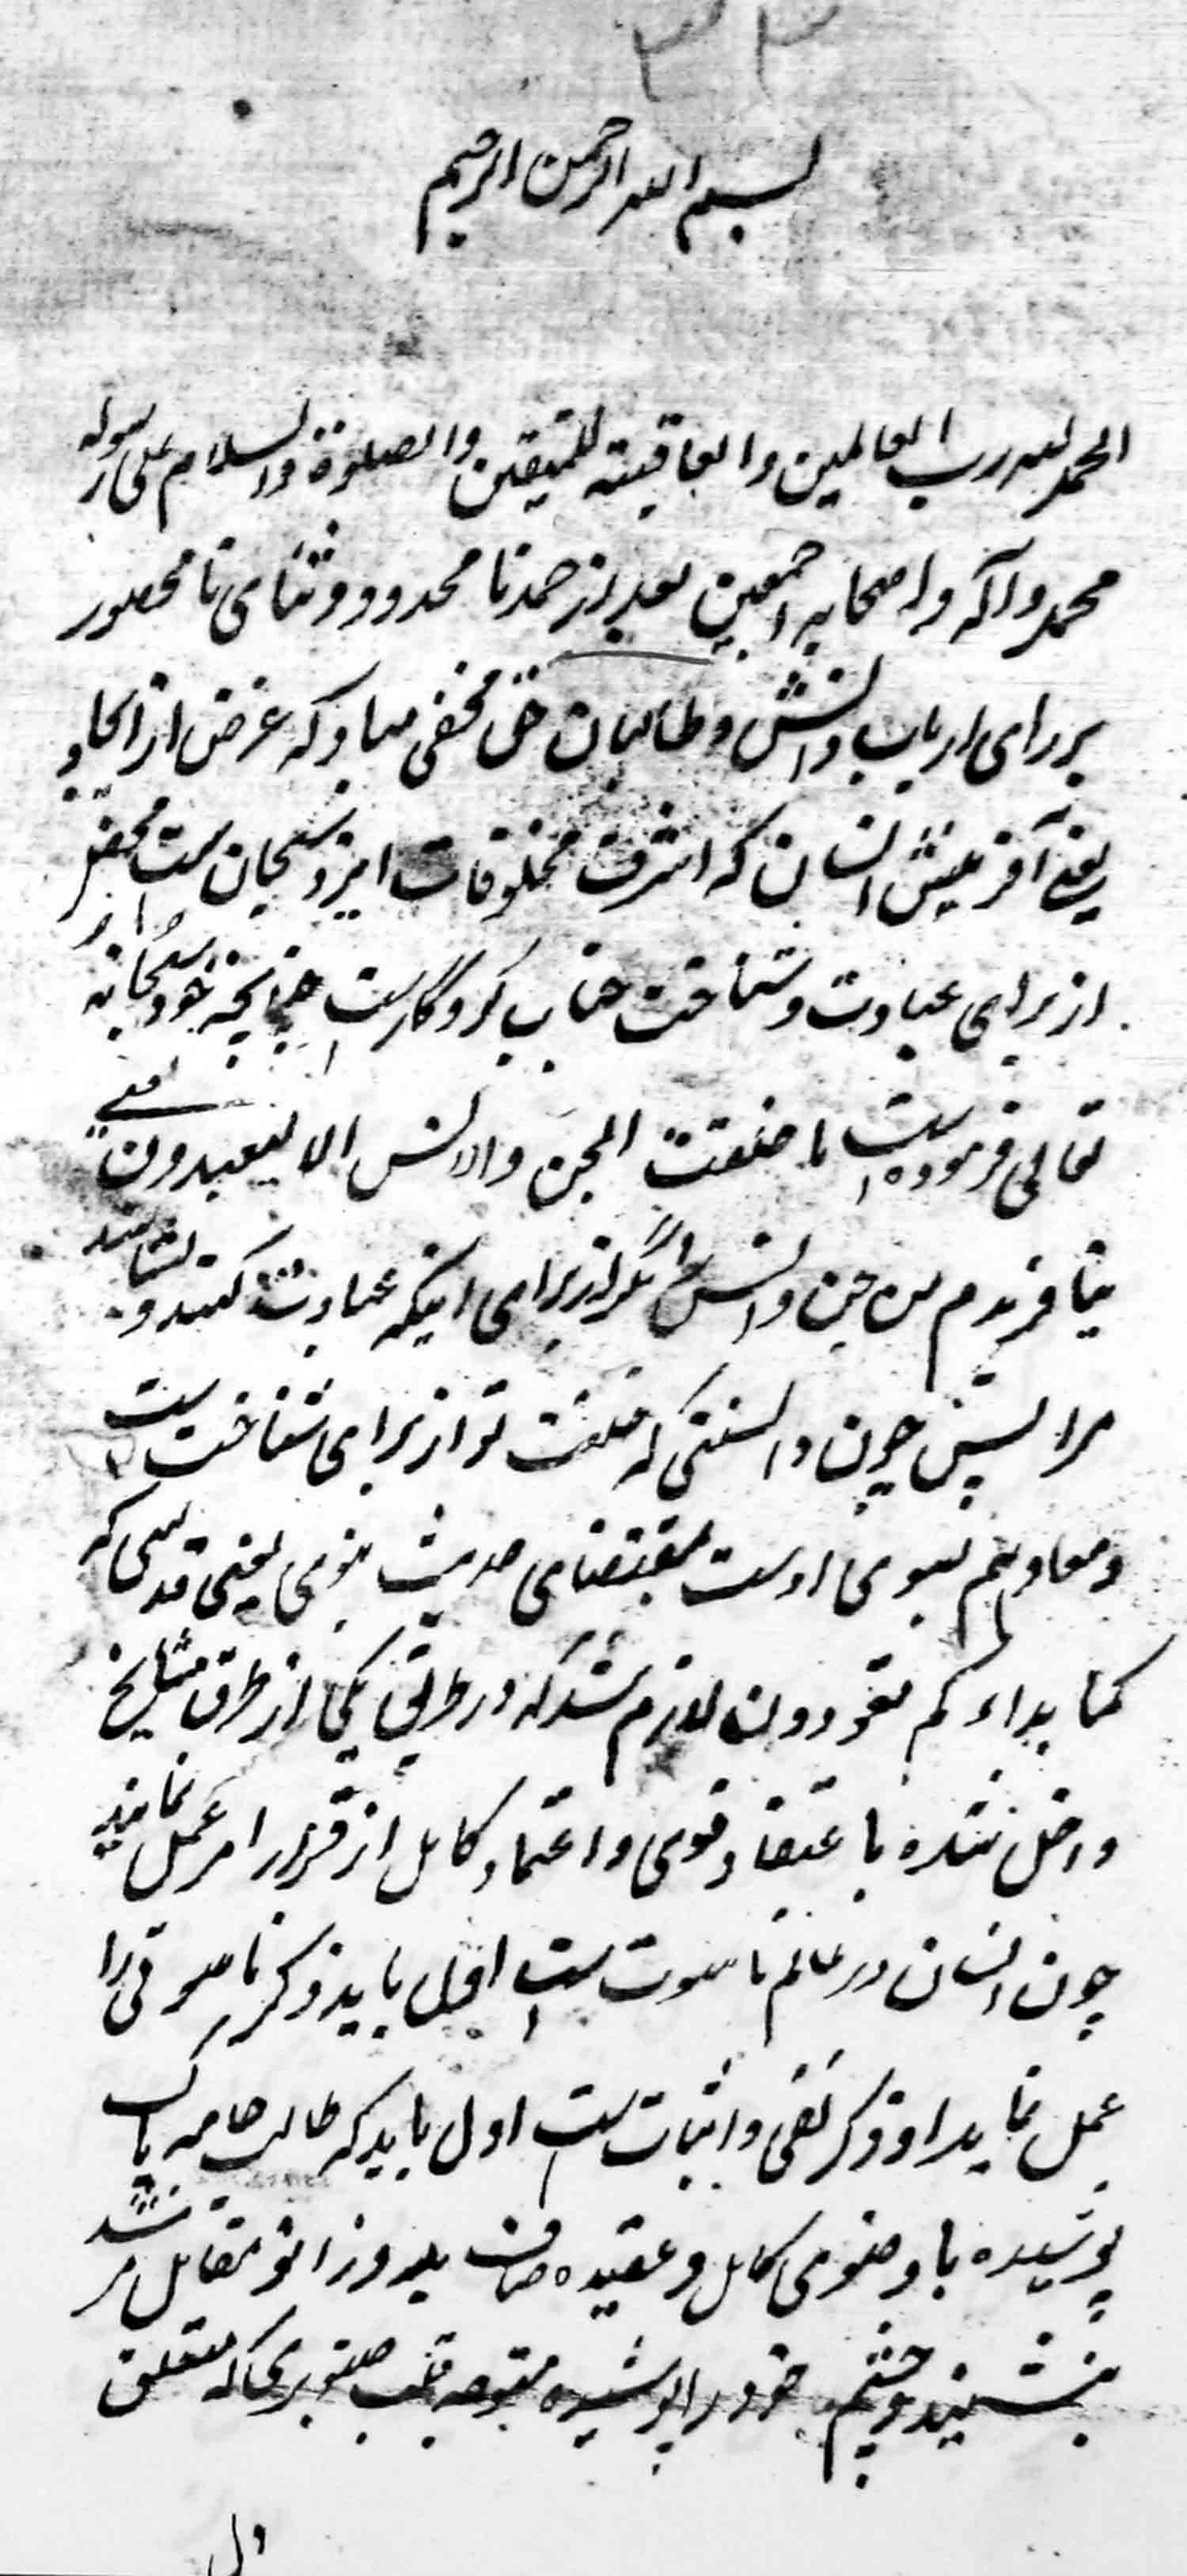 ۳۳
بسم الله الرحمن الرحیم
الحمد لله رب العالمین والعاقبته للمتیقن والصلوة والسلام علی رسوله
محمد وآله واصحابه اجمعین بعد از حمد نا محدود و ثنای نا محصور
بر رای ارباب دانش و طالبان حق مخفی مباد که غرض از ایجاد
یعنی آفرینش انسان که اشرف مخلوقات ایزد سبحان ست محض
از برای عبادت و شناخت جناب کردگارست چنانچه خود سبحانه
تعالی فرموده است ما خلقت الجن والانس الا لیعبدون یعنی
نیافریدم من جن و انس را مگر از برای اینکه عبادت کنند و بشناسند
مرا پس چون دانستی که خلقت تو از برای شناخت است
و معاد هم بسوی اوست بمقتضای حدیث نبوی یعنی قدسی که
کما بداءکم تعودون لازم شد که در طریق یکی از طرق مشایخ
داخل شده با عتقاد قوی و اعتماد کامل از قرار امر عمل نمایند
چون انسان در عالم ناسوت ست اول باید ذکر ناسوتی را
عمل نماید او ذکر نفی و اثبات ست اول باید که طالب جامه پاک
پوشیده با وضوی کامل و عقیده صاف بدو زانو مقابل مرشد
بنشیند و چشم خود را پوشیده متوجه قلب صنوبری که متعلق
دل